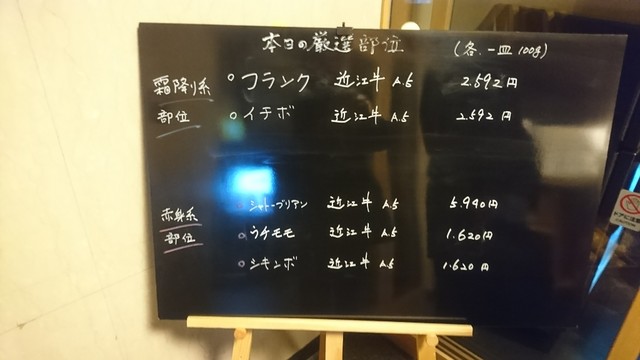 本日の厳選部位 (各、一皿 100g)
霜降り系 ○フランク 近江牛 A.5 2.592円
部位 ○イチボ 近江牛 A.5 2.592円
赤身系 シャトーブリアン 近江牛 A.5 5.940円
部位 ○ウチモモ 近江牛 A.5 1.620円
○シキンボ 近江牛 A.5 1.620円